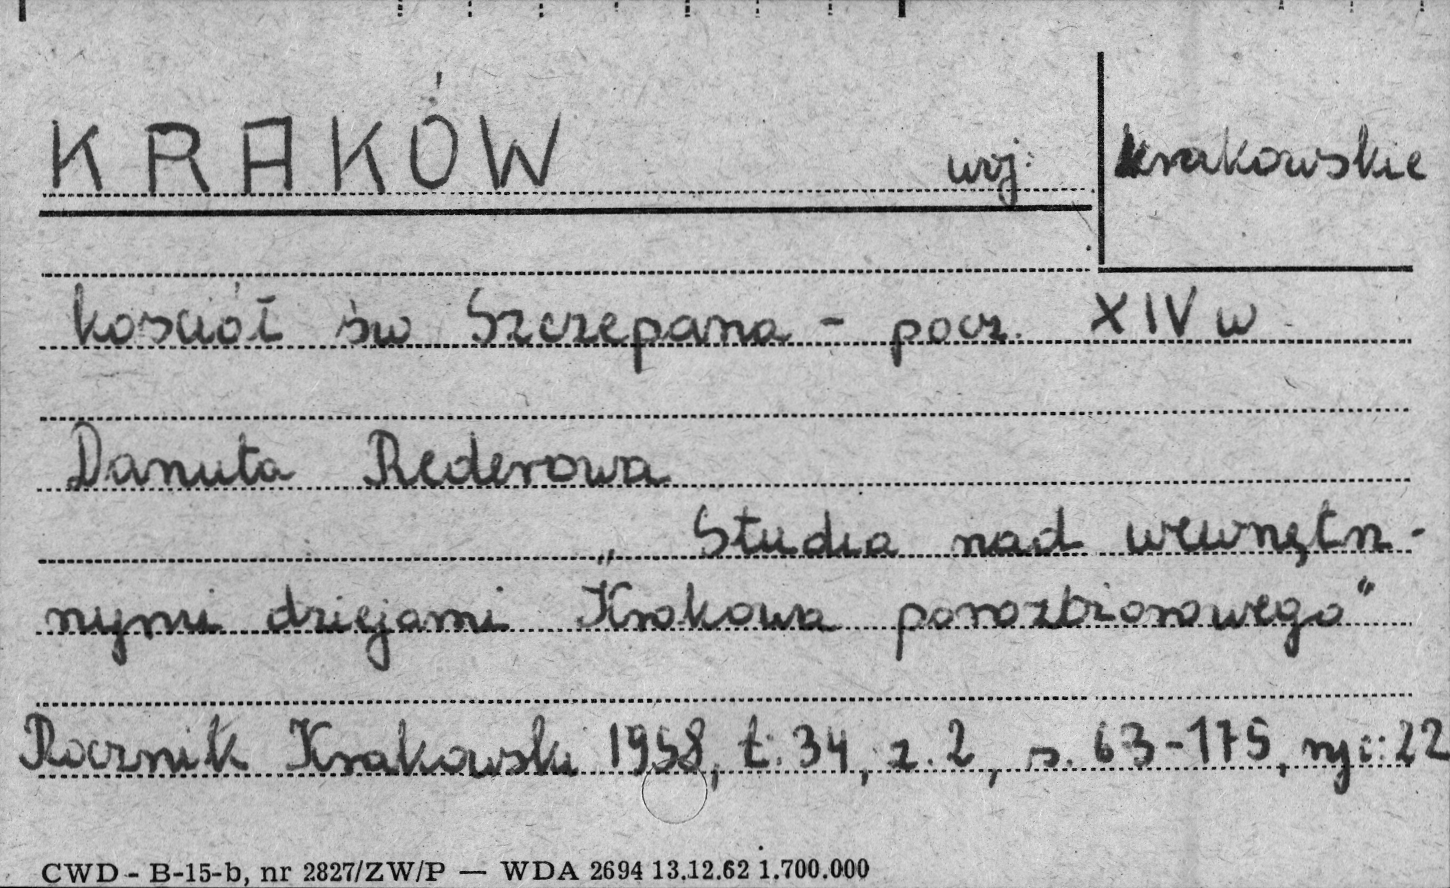 KRAKÓW woj: krakowskie
kościół św Szczepana - pocz. XIV w.
Danuta Rederowa
„ Studia nad wewnętrz-
nymi dziejami Krakowa porozbiorowego“
Rocznik Krakowski 1958, t. 34, z. 2, s. 63-175, ryc: 22
CWD - B-15-b, nr 2827/ZW/P — WDA 2694 13.12.62 1.700.000